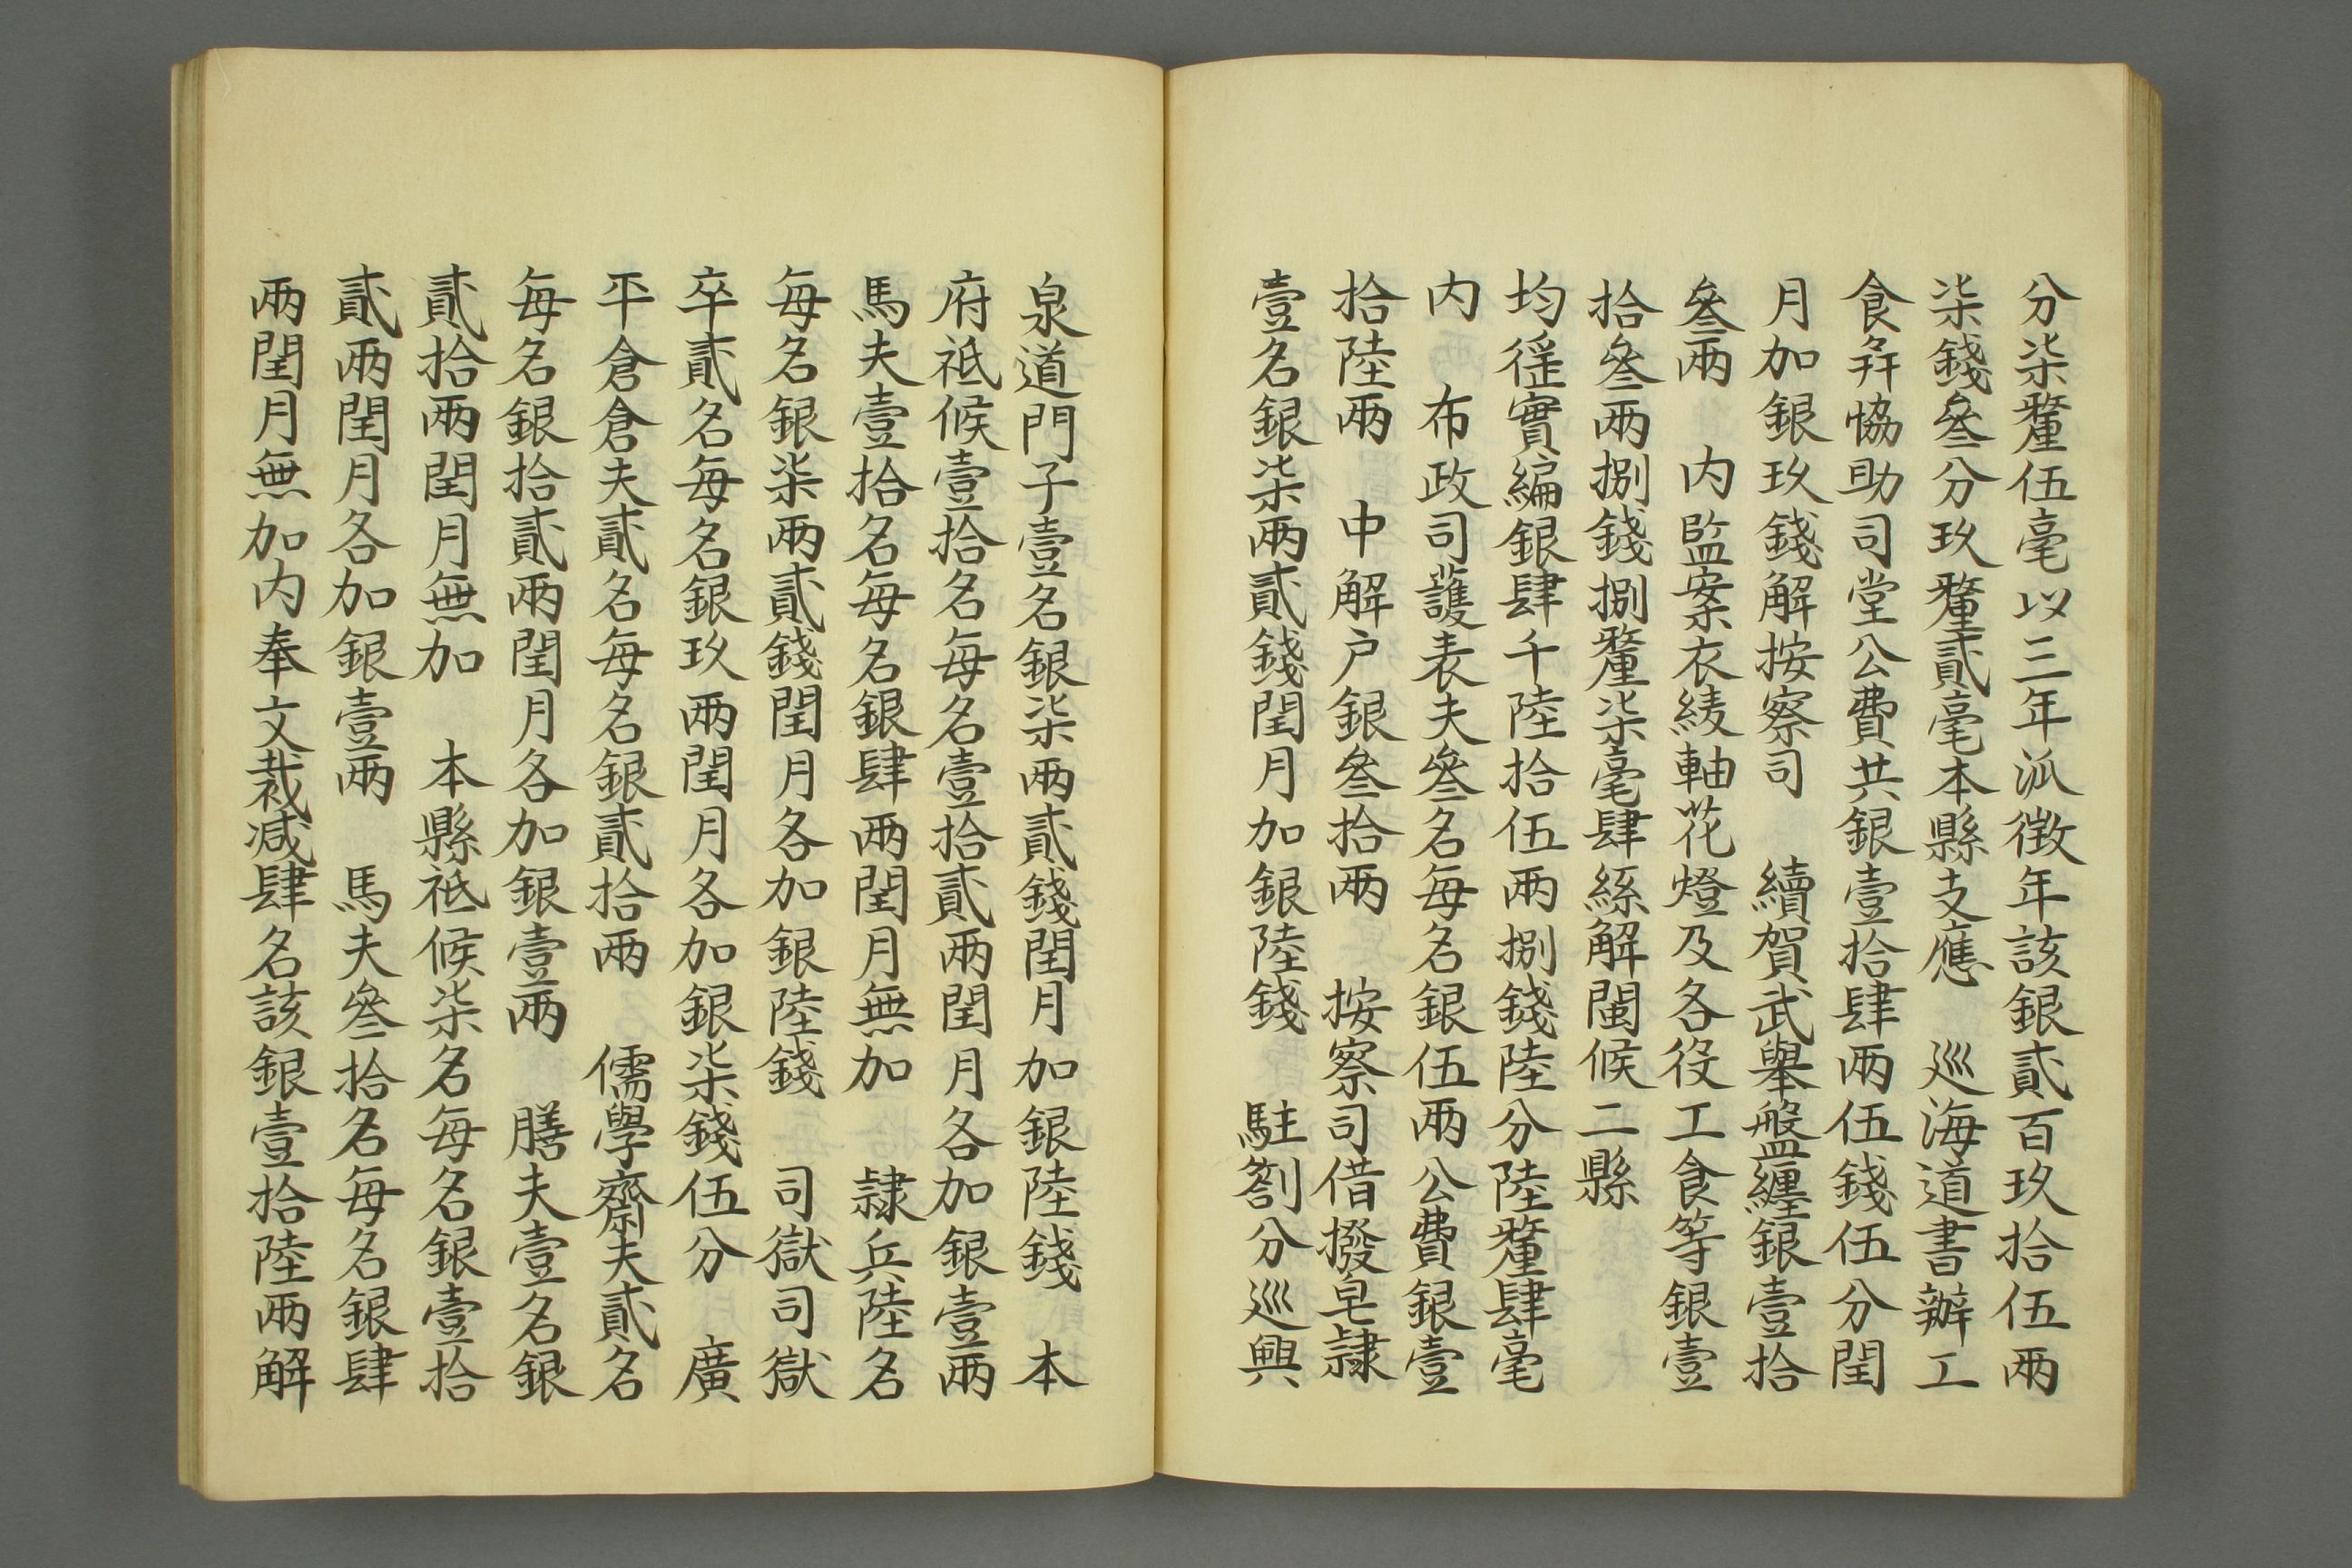 分柒釐伍毫以三年派徵年該銀貳百玖拾伍兩
柒錢叄分玖釐貳毫本縣支應　巡海道書辦工
食幷恊助司堂公費共銀壹拾肆兩伍錢伍分閏
月加銀玖錢解按察司　續賀武舉盤纏銀壹拾
叄兩　內監案衣綾軸花燈及各役工食等銀壹
拾叄兩捌錢捌釐柒毫肆絲解閩候二縣
均徭實編銀肆千陸拾伍兩捌錢陸分陸釐肆毫
內　布政司護表夫叄名每名銀伍兩公費銀壹
拾陸兩　中解户銀叄拾兩　按察司借撥皂隷
壹名銀柒兩貳錢閏月加銀陸錢　駐劄分巡興
泉道門子壹名銀柒兩貳錢閏月加銀陸錢　本
府祗候壹拾名每名壹拾貳兩閏月各加銀壹兩
馬夫壹拾名每名銀肆兩閏月無加　隷兵陸名
每名銀柒兩貳錢閏月各加銀陸錢　司獄司獄
卒貳名每名銀玖兩閏月各加銀柒錢伍分　廣
平倉倉夫貳名每名銀貳拾兩　儒學齋夫貳名
每名銀拾貳兩閏月各加銀壹兩　膳夫壹名銀
貳拾兩閏月無加　本縣祗候柒名每名銀壹拾
貳兩閏月各加銀壹兩　馬夫叄拾名每名銀肆
兩閏月無加內奉文裁減肆名該銀壹拾陸兩解